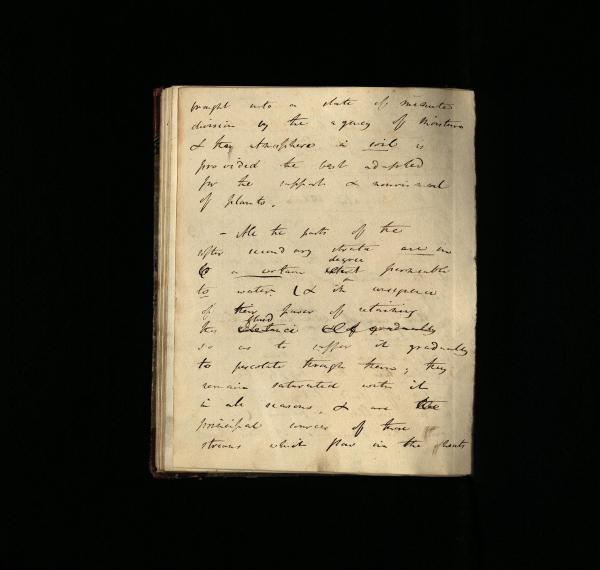 brought into a state of minute
division by the agency of moisture
& the atmosphere a soil is
provided the best adapted
for the support & nourishment
of plants.
- All the parts of the
softer secondary strata are in
to a certain extent degree permeable
to water, & in consequence
of their power of retaining
this fluid & of gradually
so as to suffer it gradually
to percolate through them; they
remain saturated with it
in all seasons, & are the
principal sources of those
streams which flow in the